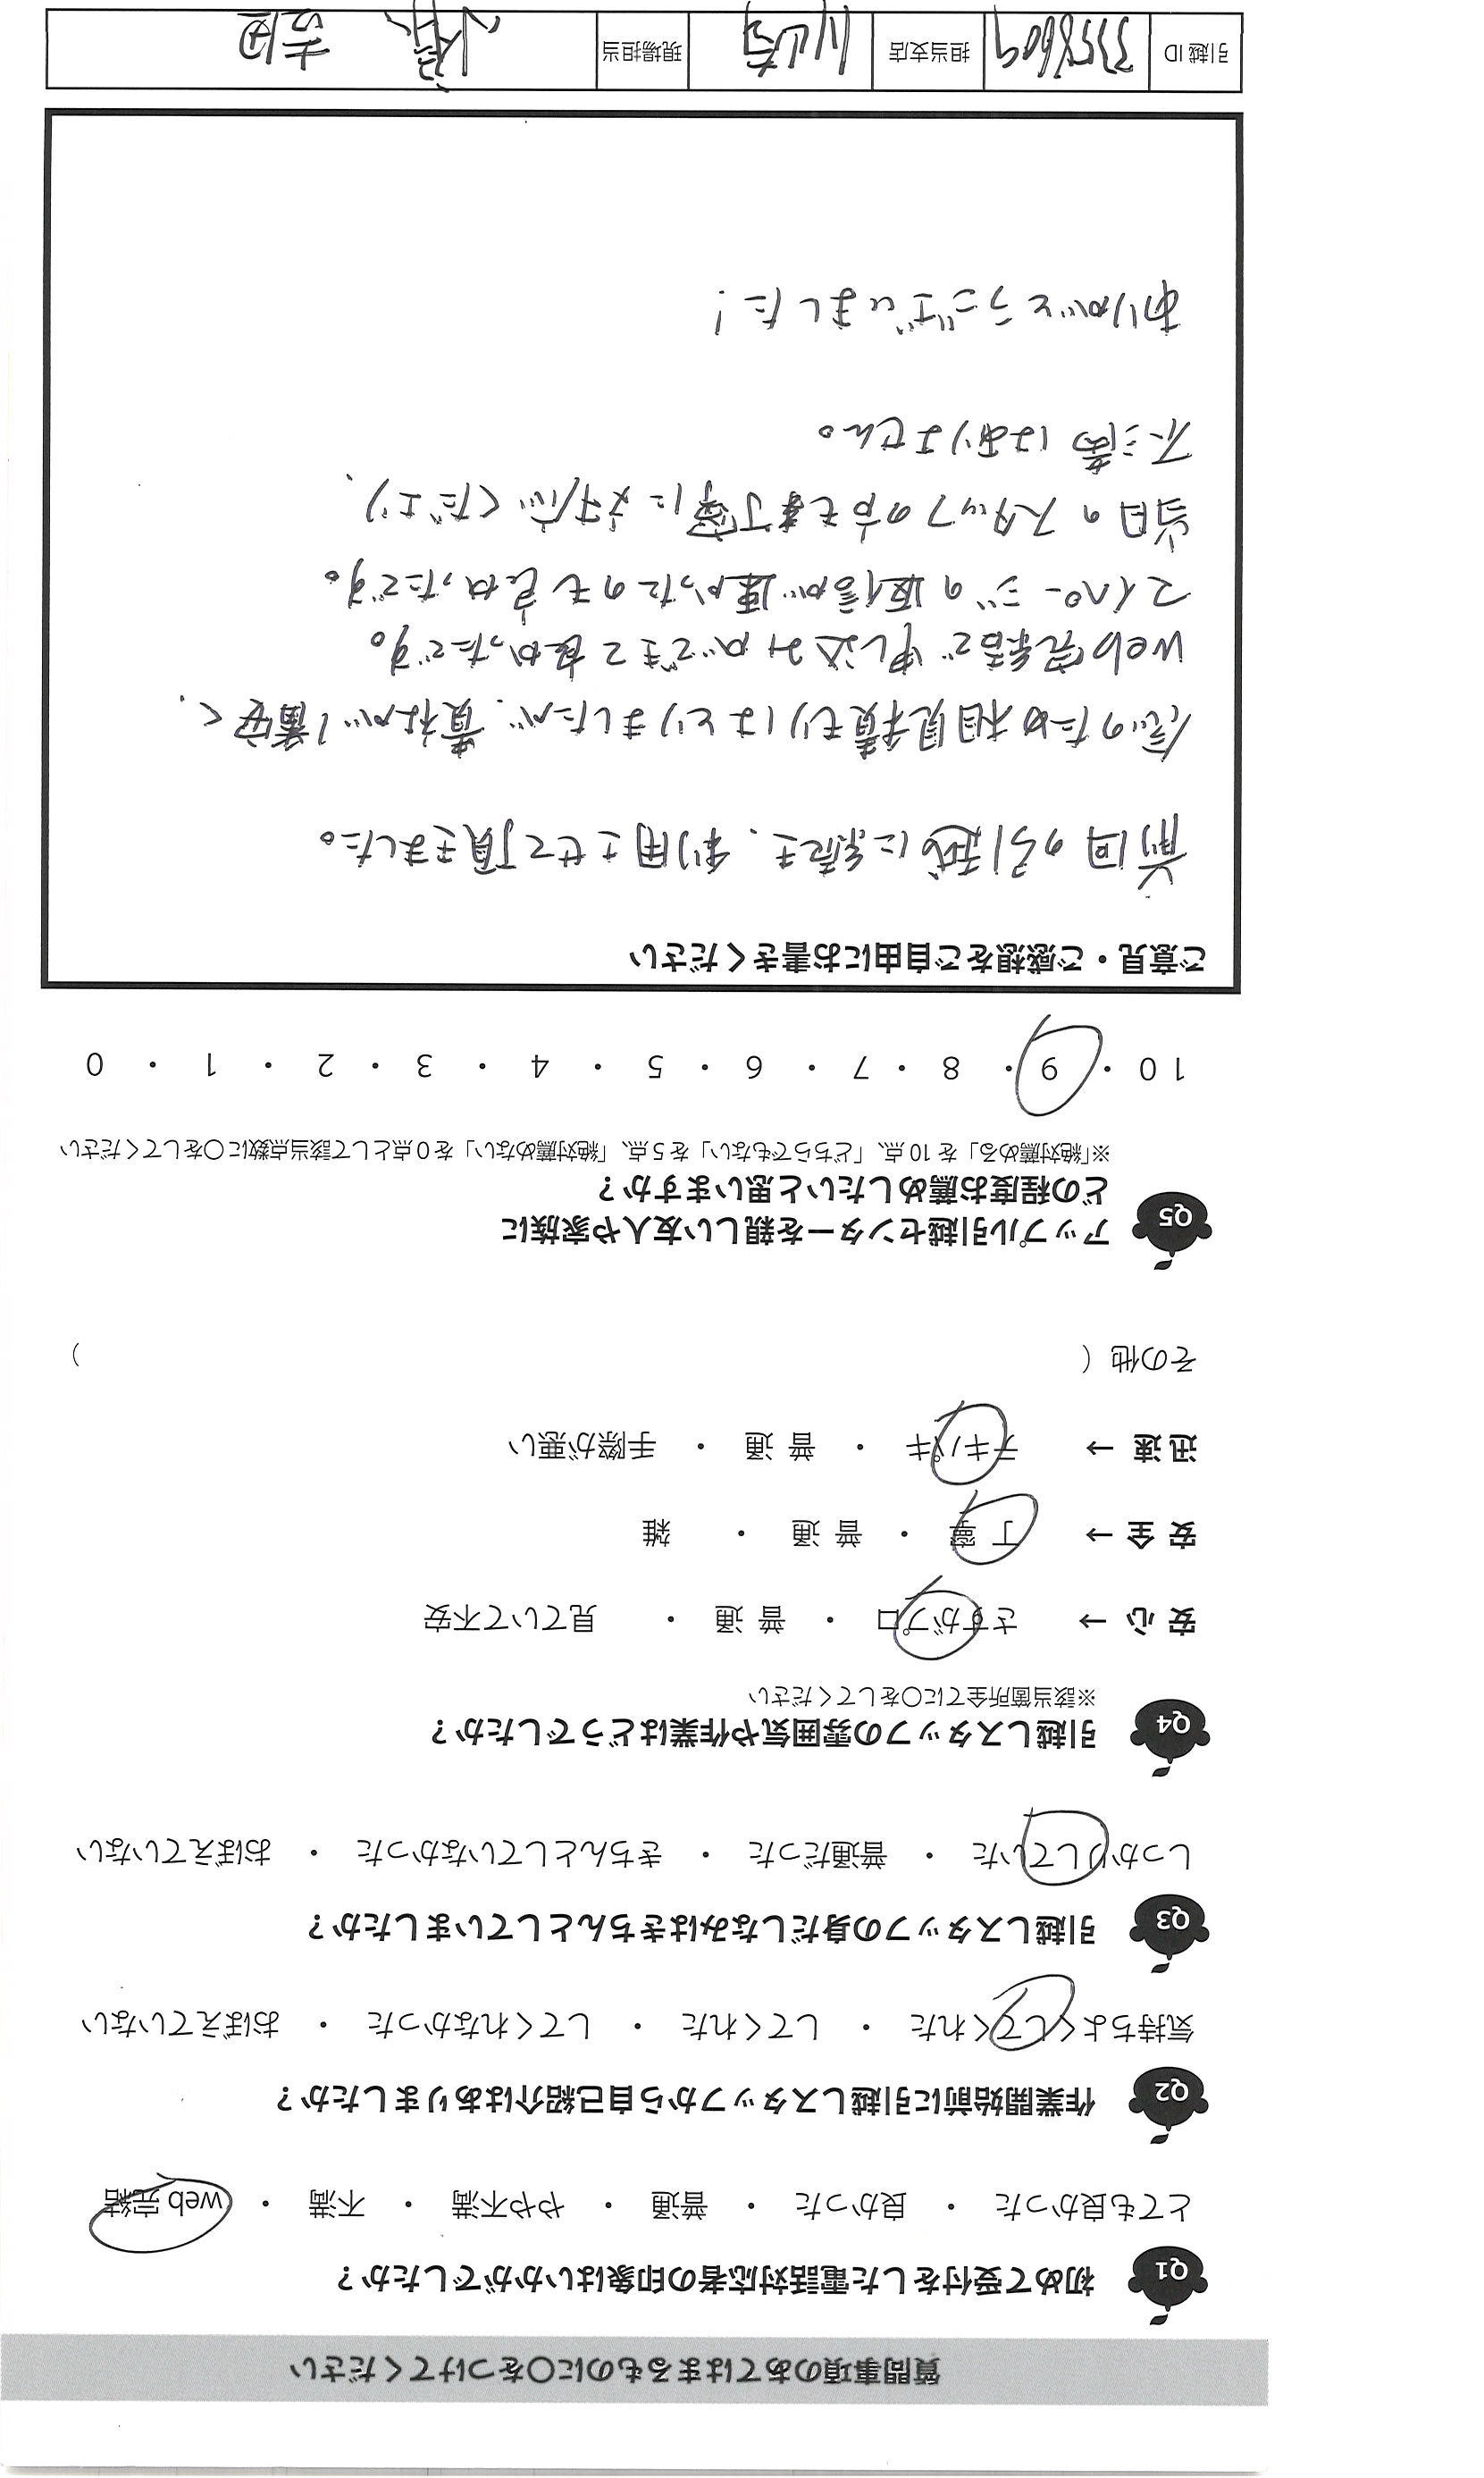 質問事項のあてはまるものに○をつけてください
Q1 初めて受付をした電話対応者の印象はいかがでしたか？
とても良かった ・ 良かった ・ 普通 ・ やや不満 ・ 不満 ・ web 完結
Q2 作業開始前に引越しスタッフから自己紹介はありましたか？
気持ちよくしてくれた ・ してくれた ・ してくれなかった ・ おぼえていない
Q3 引越しスタッフの身だしなみはきちんとしていましたか？
しっかりしていた ・ 普通だった ・ きちんとしていなかった ・ おぼえていない
Q4 引越しスタッフの雰囲気や作業はどうでしたか？
※該当箇所全てに○をしてください
安 心 → さすがプロ ・ 普 通 ・ 見ていて不安
安 全 → 丁 寧 ・ 普 通 ・ 雑
迅 速 → テキパキ ・ 普 通 ・ 手際が悪い
その他（ ）
Q5 アップル引越センターを親しい友人や家族に
どの程度お薦めしたいと思いますか？
※「絶対薦める」を 10 点、「どちらでもない」を 5 点、「絶対薦めない」を 0 点として該当点数に○をしてください
10 ・ 9 ・ 8 ・ 7 ・ 6 ・ 5 ・ 4 ・ 3 ・ 2 ・ 1 ・ 0
ご意見・ご感想をご自由にお書きください
前回の引越に続き、利用させて頂きました。
念のため相見積もりはとりましたが、貴社が1番安く、
web完結で申し込みができて良かったです。
マイページの返信が速かったのも良かったです。
当日のスタッフの方も丁寧に対応くださり、
不満はありません。
ありがとうございました！
引越 ID 3358609 担当支店 川崎 現場担当 吉田